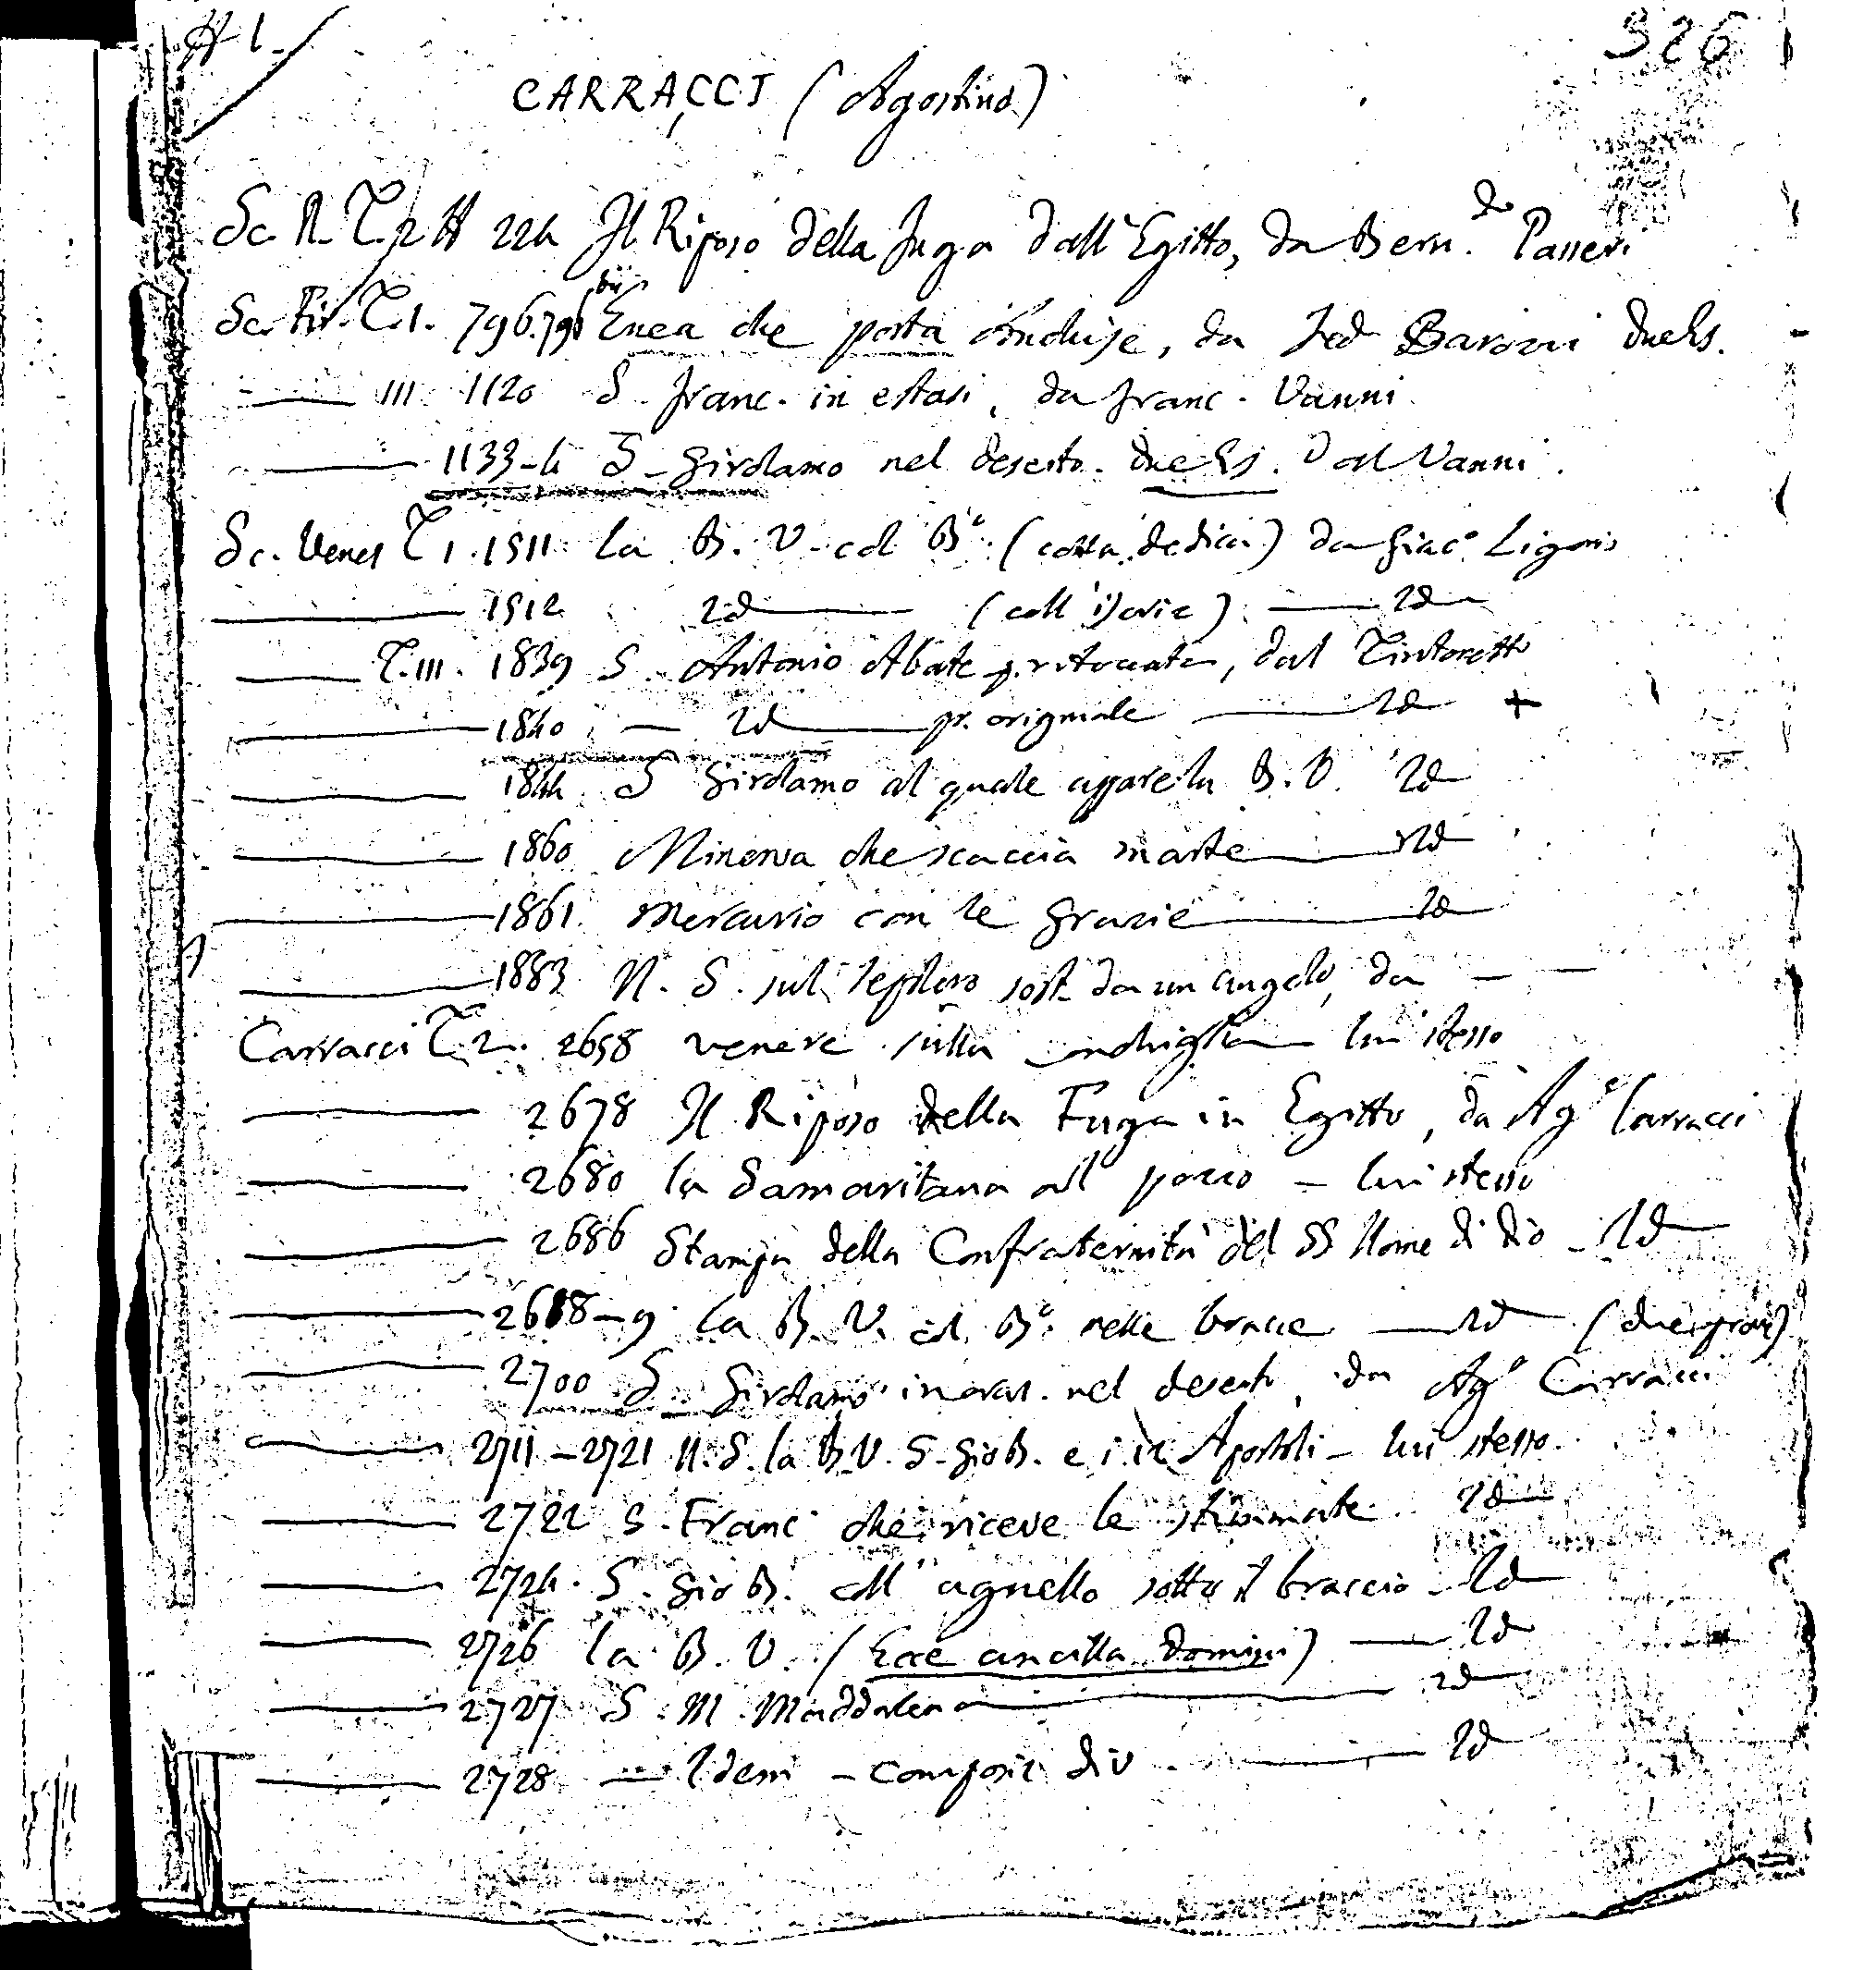 # 1. 326
CARRACCI (Agostino)
Sc. R. T. 2 # 224 Il Riposo della fuga dall' Egitto, da Bern.do Passeri
Sc. Fir. T. 1. 796. 796 bis Enea che porta Anchise, da Fed Barozzi due Es.
—— III 1120 S. Franc. in estasi, da Franc. Vanni.
—— 1133-4 S. Girolamo nel deserto. due Es. dal Vanni.
Sc. Venez T 1. 1511 La B. V. col Bo. (colla dedica) da Giaco Ligozio
—— 1512 Id —— (coll' ) —— Id
—— T. III. 1839 S. Antonio Abate p. ritoccata, dal Tintoretto
—— 1840 — Id —— pr. originale —— Id +
—— 1844 S Girolamo al quale appare la B. V. Id
—— 1860 Minerva che scaccia Marte —— Id
—— 1861 Mercurio con le Grazie —— Id
—— 1883 N. S. sul sepolcro sost. da un angelo, da — —
Carracci T. 2. 2658 Venere sulla conchiglia — lui stesso
—— 2678 Il Riposo della Fuga in Egitto, da Ago Carracci
—— 2680 la Samaritana al pozzo — lui stesso
—— 2686 Stampa della Confraternita del SS Nome di Dio — Id
—— 2688-9 La B. V. col Bo. nelle bracce —— Id (due prove)
—— 2700 S. Girolamo in oraz. nel deserto, da Ago Carracci
—— 2711-2721 N. S. la B. V. S. Gio B. e i 12 Apostoli — lui stesso
—— 2722 S. Franc che riceve le stimmate Id
—— 2724. S. Gio B. coll' agnello sotto il braccio — Id
—— 2726 La B. V. (Ecce ancilla Domini) —— Id
—— 2727 S. M. Maddalena —— Id
—— 2728 — Idem — composiz div. —— Id